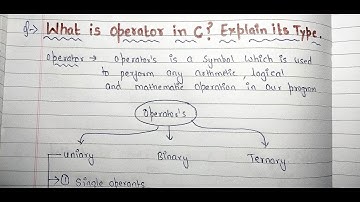 Q-> What is operator in C? Explain its Type.
operator -> operator's is a symbol which is used
to perform any arthmetic, logical
and mathematic operation in our program
operator's
uniary Binary Ternary
① Single operants